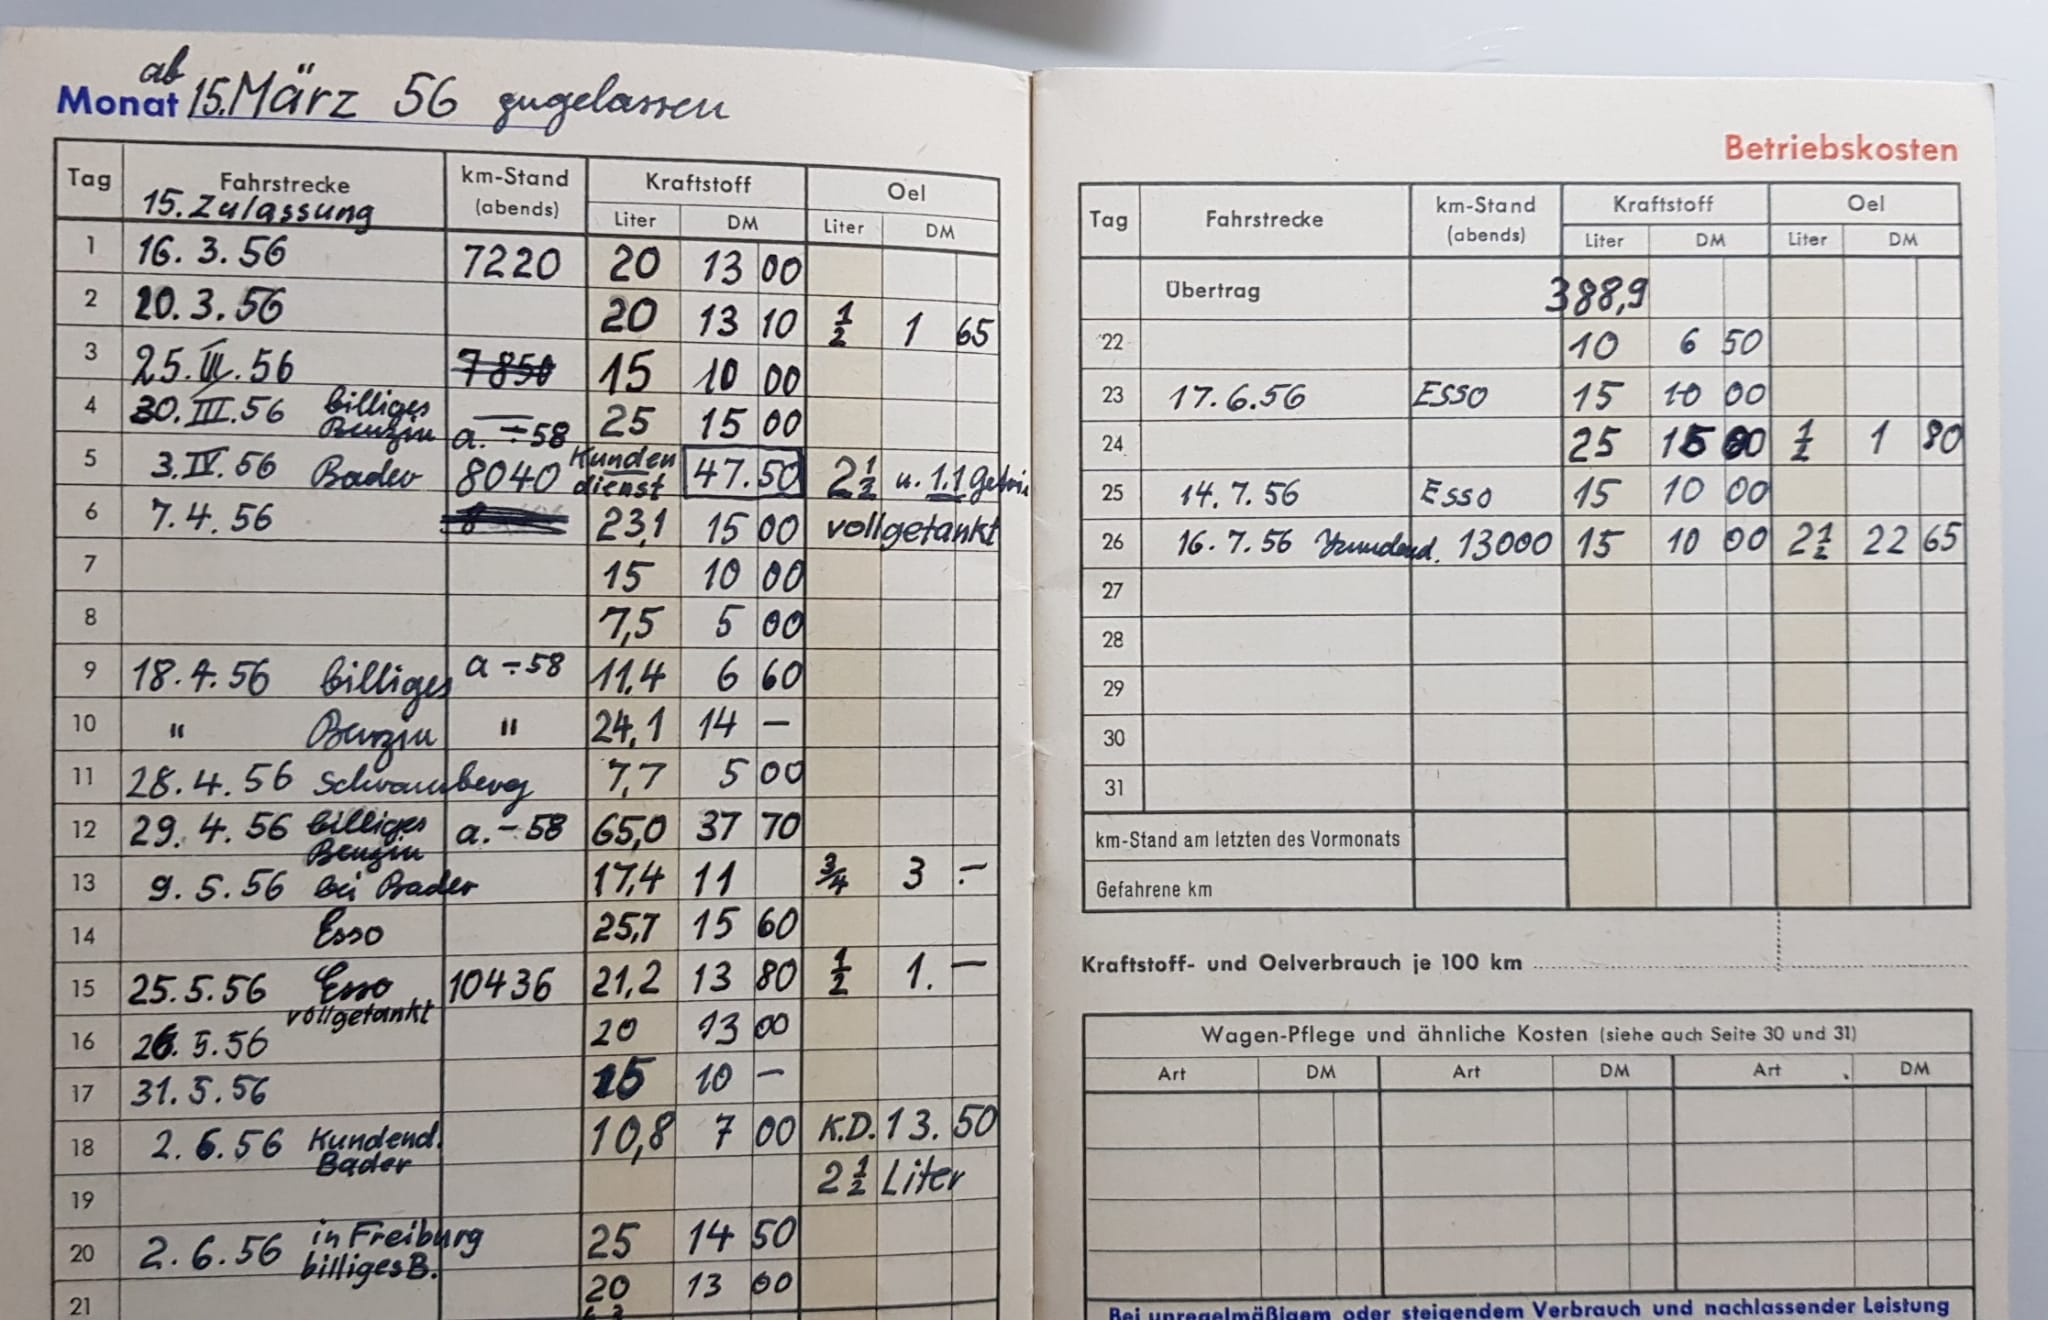 ab
Monat 15. März 56 zugelassen
Tag Fahrstrecke km-Stand (abends) Kraftstoff Oel
Liter DM Liter DM
15. Zulassung
1 16. 3. 56 7220 20 13 00
2 20. 3. 56 20 13 10 1/2 1 65
3 25. III. 56 7850 15 10 00
4 30. III. 56 billiges Benzin a. ÷ 58 25 15 00
5 3. IV. 56 Bader 8040 Kundendienst 47.50 2 1/2 u. 1.1
6 7. 4. 56 23,1 15 00 vollgetankt
7 15 10 00
8 7,5 5 00
9 18. 4. 56 billiges a ÷ 58 11,4 6 60
10 " Benzin " 24,1 14 –
11 28. 4. 56 Schramberg 7,7 5 00
12 29. 4. 56 billiges Benzin a. ÷ 58 65,0 37 70
13 9. 5. 56 bei Bader 17,4 11 3/4 3 –
14 Esso 25,7 15 60
15 25. 5. 56 Esso vollgetankt 10436 21,2 13 80 1/2 1. –
16 26. 5. 56 20 13 00
17 31. 5. 56 15 10 –
18 2. 6. 56 Kundend. Bader 10,8 7 00 K.D. 13. 50
19 2 1/2 Liter
20 2. 6. 56 in Freiburg billiges B. 25 14 50
21 20 13 00
Betriebskosten
Tag Fahrstrecke km-Stand (abends) Kraftstoff Oel
Liter DM Liter DM
Übertrag 388,9
22 10 6 50
23 17. 6. 56 ESSO 15 10 00
24 25 15 00 1/2 1 80
25 14. 7. 56 Esso 15 10 00
26 16. 7. 56 Kundend. 13000 15 10 00 2 1/2 22 65
27
28
29
30
31
km-Stand am letzten des Vormonats
Gefahrene km
Kraftstoff- und Oelverbrauch je 100 km
Wagen-Pflege und ähnliche Kosten (siehe auch Seite 30 und 31)
Art DM Art DM Art DM
Bei unregelmäßigem oder steigendem Verbrauch und nachlassender Leistung